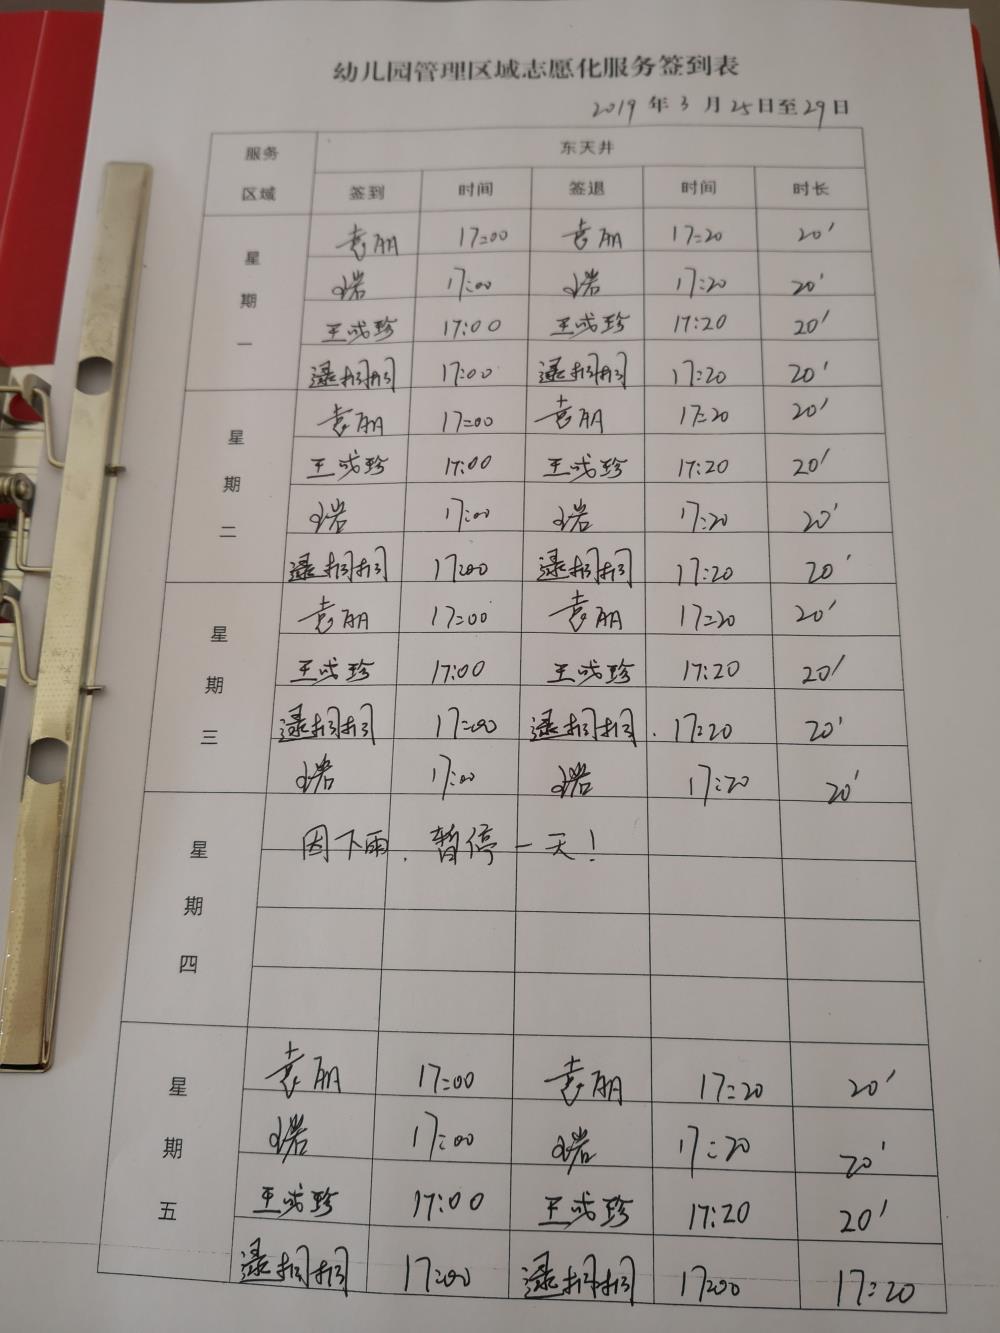 幼儿园管理区域志愿化服务签到表
2019年3月25日至29日
服务区域 东天井
签到 时间 签退 时间 时长
星期一
袁丽 17:00 袁丽 17:20 20'
17:00 17:20 20'
王成珍 17:00 王成珍 17:20 20'
逯栩栩 17:00 逯栩栩 17:20 20'
星期二
袁丽 17:00 袁丽 17:20 20'
王成珍 17:00 王成珍 17:20 20'
17:00 17:20 20'
逯栩栩 17:00 逯栩栩 17:20 20'
星期三
袁丽 17:00 袁丽 17:20 20'
王成珍 17:00 王成珍 17:20 20'
逯栩栩 17:00 逯栩栩 17:20 20'
17:00 17:20 20'
星期四
因下雨，暂停一天！
星期五
袁丽 17:00 袁丽 17:20 20'
17:00 17:20 20'
王成珍 17:00 王成珍 17:20 20'
逯栩栩 17:00 逯栩栩 17:00 17:20